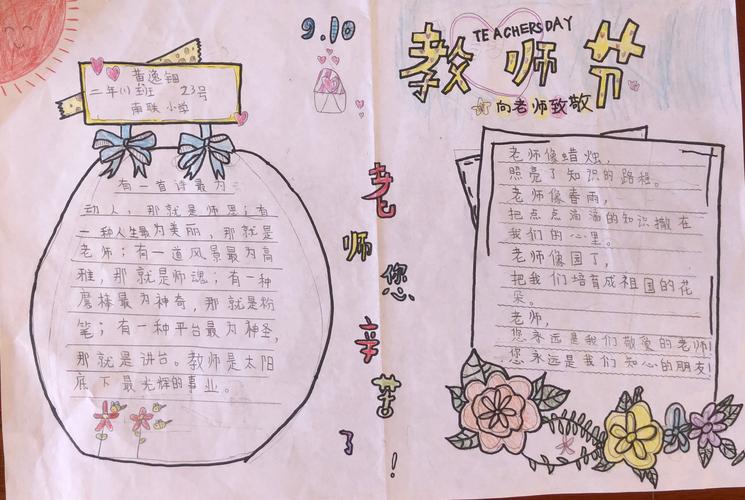 9.10
黄逸钿
二年(1)班 23号
南联小学
有一首诗最为
动人，那就是师恩；有
一种人生最为美丽，那就是
老师；有一道风景最为高
雅，那就是师魂；有一种
魔棒最为神奇，那就是粉
笔；有一种平台最为神圣，
那就是讲台。教师是太阳
底下最光辉的事业。
老师您辛苦了！
TEACHERSDAY
教师节
向老师致敬
老师像蜡烛，
照亮了知识的路程。
老师像春雨，
把点点滴滴的知识撒在
我们的心里。
老师像园丁，
把我们培育成祖国的花
朵。
老师，
您永远是我们敬爱的老师！
您永远是我们知心的朋友！